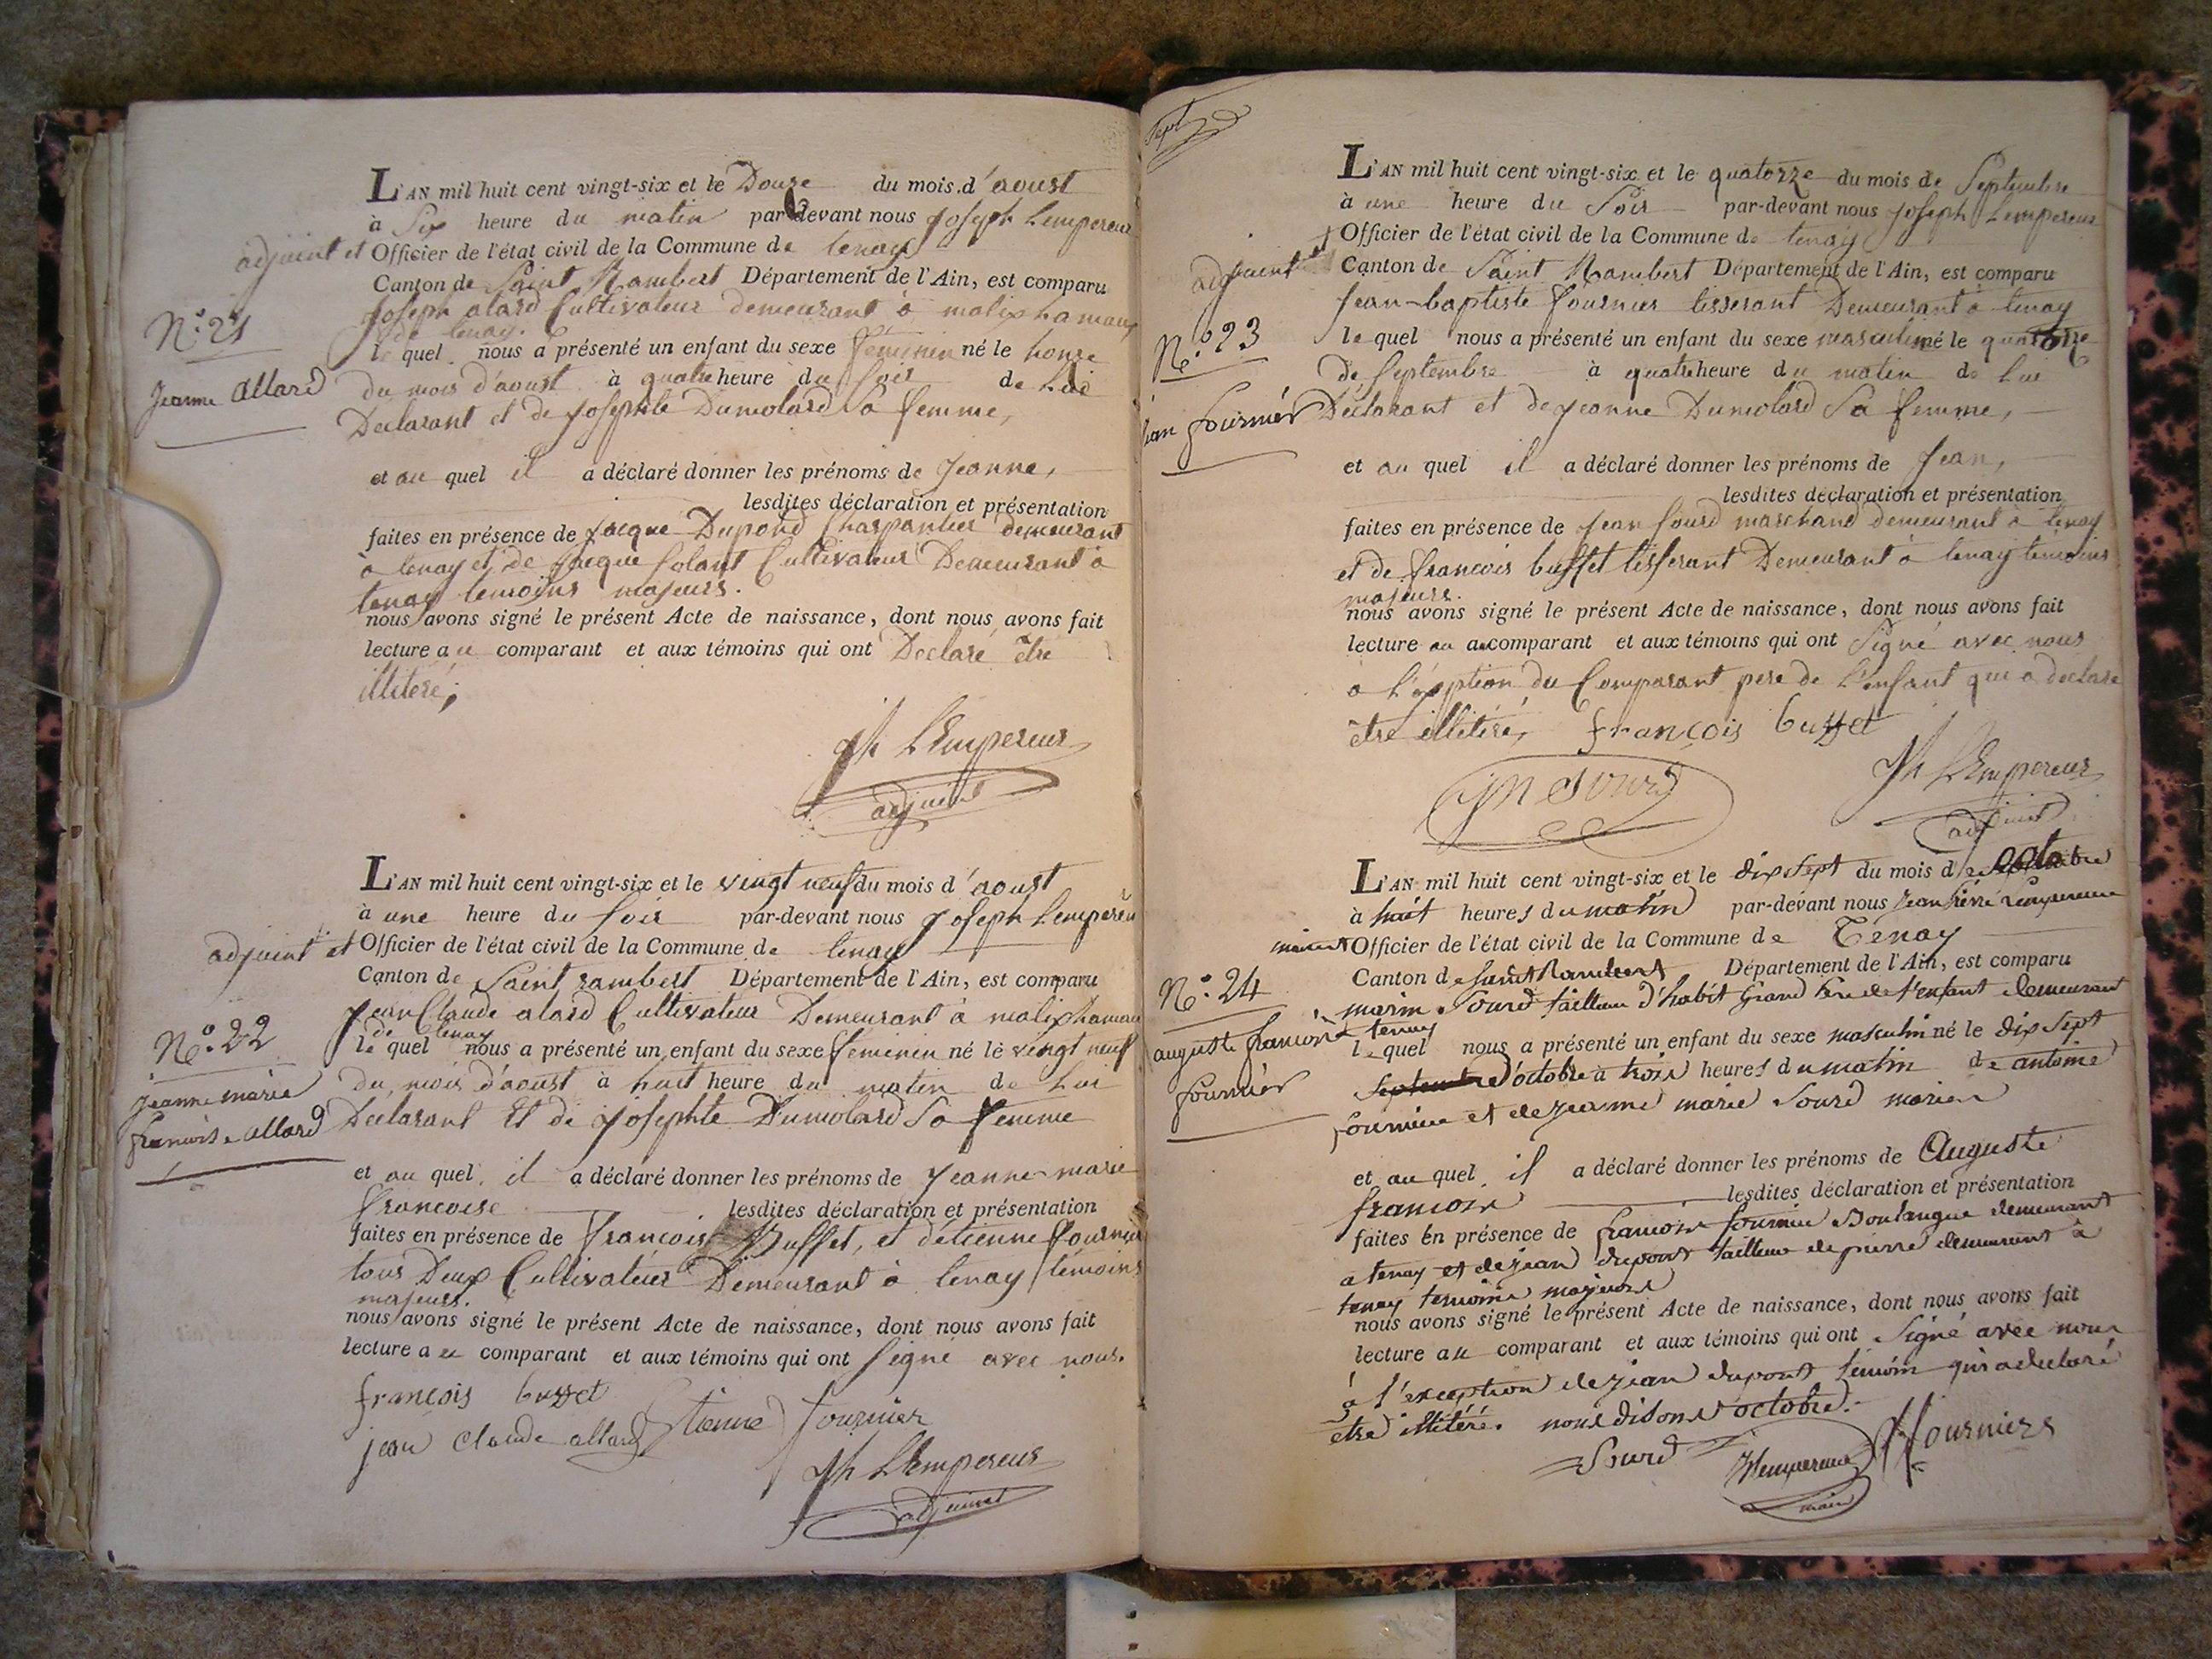 L'AN mil huit cent vingt-six et le Douze du mois d'aoust
à Six heure du matin par-devant nous Joseph Lempereur
adjoint et Officier de l'état civil de la Commune de tenay
Canton de Saint Rambert Département de l'Ain, est comparu
Joseph alard Cultivateur demeurant à malix hamaux
de tenay.
N.° 21
le quel nous a présenté un enfant du sexe féminin né le honze
Jeanne allard
du mois d'aoust à quatre heure du soir de Lui
Déclarant et de Josephte Dumolard Sa femme,
et au quel il a déclaré donner les prénoms de Jeanne,
lesdites déclaration et présentation
faites en présence de Jacque Dupond Charpantier demeurant
à tenay et de Jacque Solant Cultivateur Demeurant à
tenay temoins majeurs.
nous avons signé le présent Acte de naissance, dont nous avons fait
lecture au comparant et aux témoins qui ont Déclaré être
illiteré,
Jh LEmpereur
adjoint
L'AN mil huit cent vingt-six et le vingt neuf du mois d'aoust
à une heure du soir par-devant nous Joseph Lempereur
adjoint et Officier de l'état civil de la Commune de tenay
Canton de Saint rambert Département de l'Ain, est comparu
Jean Claude alard Cultivateur Demeurant à malix hamau
de tenay
N.° 22
le quel nous a présenté un enfant du sexe feminin né le vingt neuf
jeanne marie
françoise allard
du mois d'aoust à huit heure du matin de Lui
Déclarant Et de Josephte Dumolard Sa femme
et au quel il a déclaré donner les prénoms de Jeanne marie
francoise lesdites déclaration et présentation
faites en présence de francois Buffet, et d'étienne fournier
tous Deux Cultivateur Demeurant à tenay témoins
majeurs.
nous avons signé le présent Acte de naissance, dont nous avons fait
lecture au comparant et aux témoins qui ont signé avec nous.
françois buffet
jean Claude allard Etienne fournier
Jh LEmpereur
adjoint
Sept
L'AN mil huit cent vingt-six et le quatorze du mois de Septembre
à une heure du Soir par-devant nous Joseph Lempereur
adjoint et Officier de l'état civil de la Commune de tenay
Canton de Saint Rambert Département de l'Ain, est comparu
Jean-baptiste fournier tisserant Demeurant à tenay
N.° 23
le quel nous a présenté un enfant du sexe masculin né le quatorze
de Septembre à quatre heure du matin de Lui
jean fournier
Déclarant et de Jeanne Dumolard Sa femme,
et au quel il a déclaré donner les prénoms de Jean,
lesdites déclaration et présentation
faites en présence de Jean Sourd marchand demeurant à tenay
et de francois buffet tisserant Demeurant à tenay témoins
majeurs.
nous avons signé le présent Acte de naissance, dont nous avons fait
lecture au comparant et aux témoins qui ont Signé avec nous
à l'exption du Comparant pere de L'enfant qui a déclaré
être illitéré, françois buffet
jn Sourd
Jh LEmpereur
adjoint
L'AN mil huit cent vingt-six et le dix sept du mois d octobre
à huit heures du matin par-devant nous Jean Lempereur
maire et Officier de l'état civil de la Commune de Tenay
Canton de Saint Rambert Département de l'Ain, est comparu
N.° 24
marin Sourd tailleur d'habit Grand Père de l'enfant demeurant
tenay
auguste françois
fournier
le quel nous a présenté un enfant du sexe masculin né le dix sept
septembre d'octobre à trois heures du matin de antoine
fournier et de jeanne marie Sourd mariés
et au quel il a déclaré donner les prénoms de Auguste
françois lesdites déclaration et présentation
faites en présence de françois fournier Boulanger demeurant
a tenay et de jean dupont tailleur de pierre demeurant à
tenay temoins majeurs
nous avons signé le présent Acte de naissance, dont nous avons fait
lecture au comparant et aux témoins qui ont Signé avec nous
à l'exception de jean dupont témoin qui a déclaré
etre illitéré. nous disons octobre.
Sourd Lempereur fourniers
maire